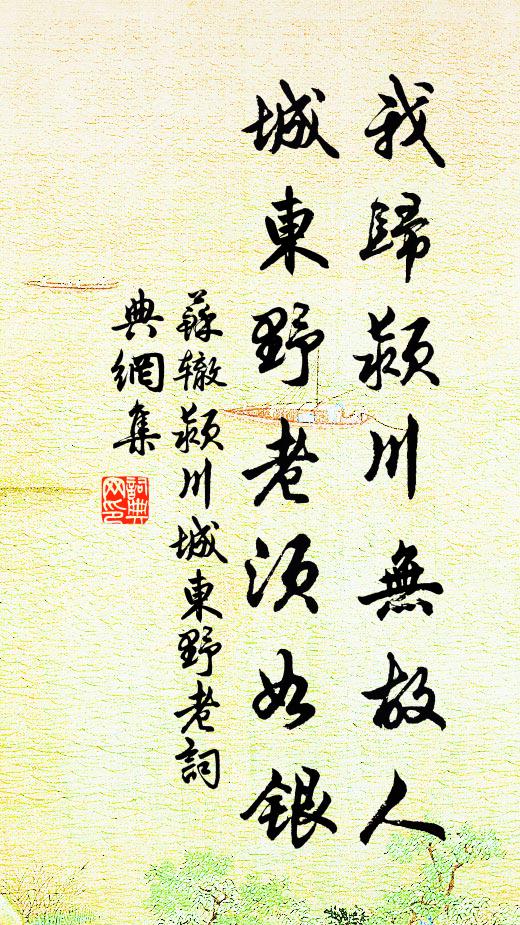 我歸潁川無故人
城東野老須如銀
蘇轍潁川城東野老詞
典網集
詞典网印